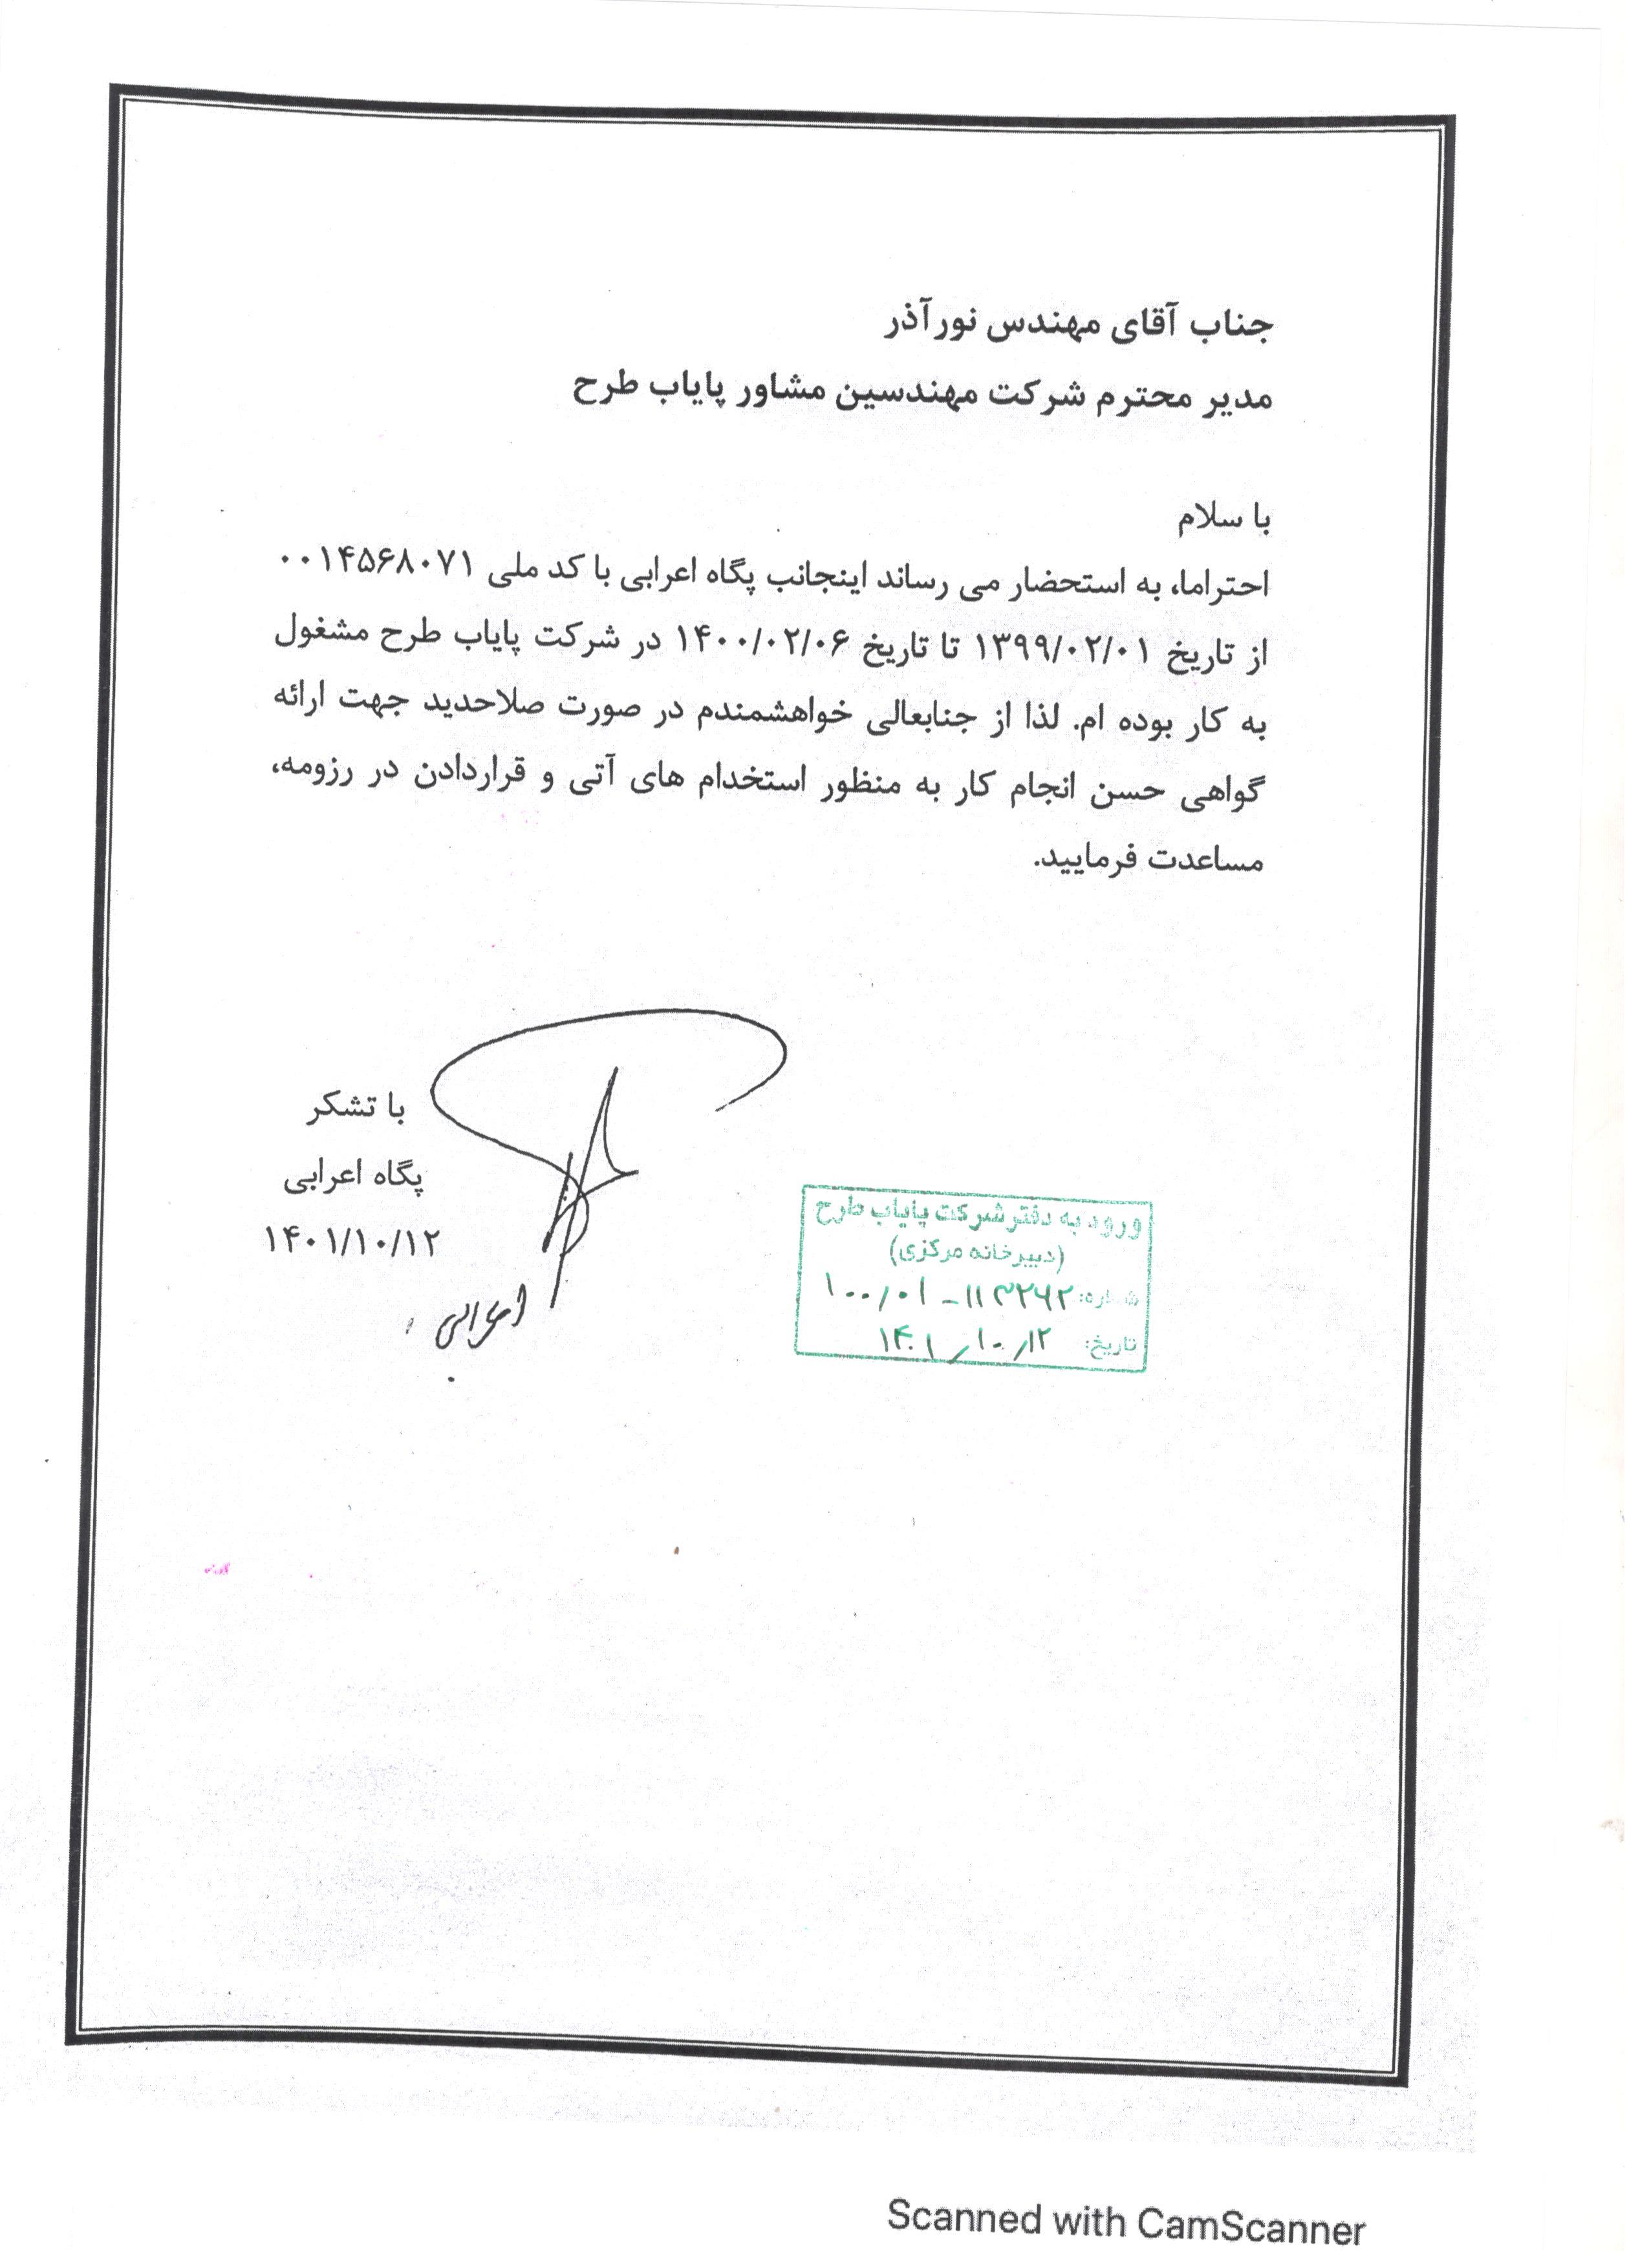 جناب آقای مهندس نورآذر
مدیر محترم شرکت مهندسین مشاور پایاب طرح
با سلام
احتراما، به استحضار می رساند اینجانب پگاه اعرابی با کد ملی ۰۰۱۴۵۶۸۰۷۱
از تاریخ ۱۳۹۹/۰۲/۰۱ تا تاریخ ۱۴۰۰/۰۲/۰۶ در شرکت پایاب طرح مشغول
به کار بوده ام. لذا از جنابعالی خواهشمندم در صورت صلاحدید جهت ارائه
گواهی حسن انجام کار به منظور استخدام های آتی و قراردادن در رزومه،
مساعدت فرمایید.
با تشکر
پگاه اعرابی
۱۴۰۱/۱۰/۱۲
اعرابی
ورود به دفتر شرکت پایاب طرح
(دبیرخانه مرکزی)
شماره: ۱۰۰/۰۱-۱۱۳۲۶۲
تاریخ: ۱۴۰۱/۱۰/۱۲
Scanned with CamScanner